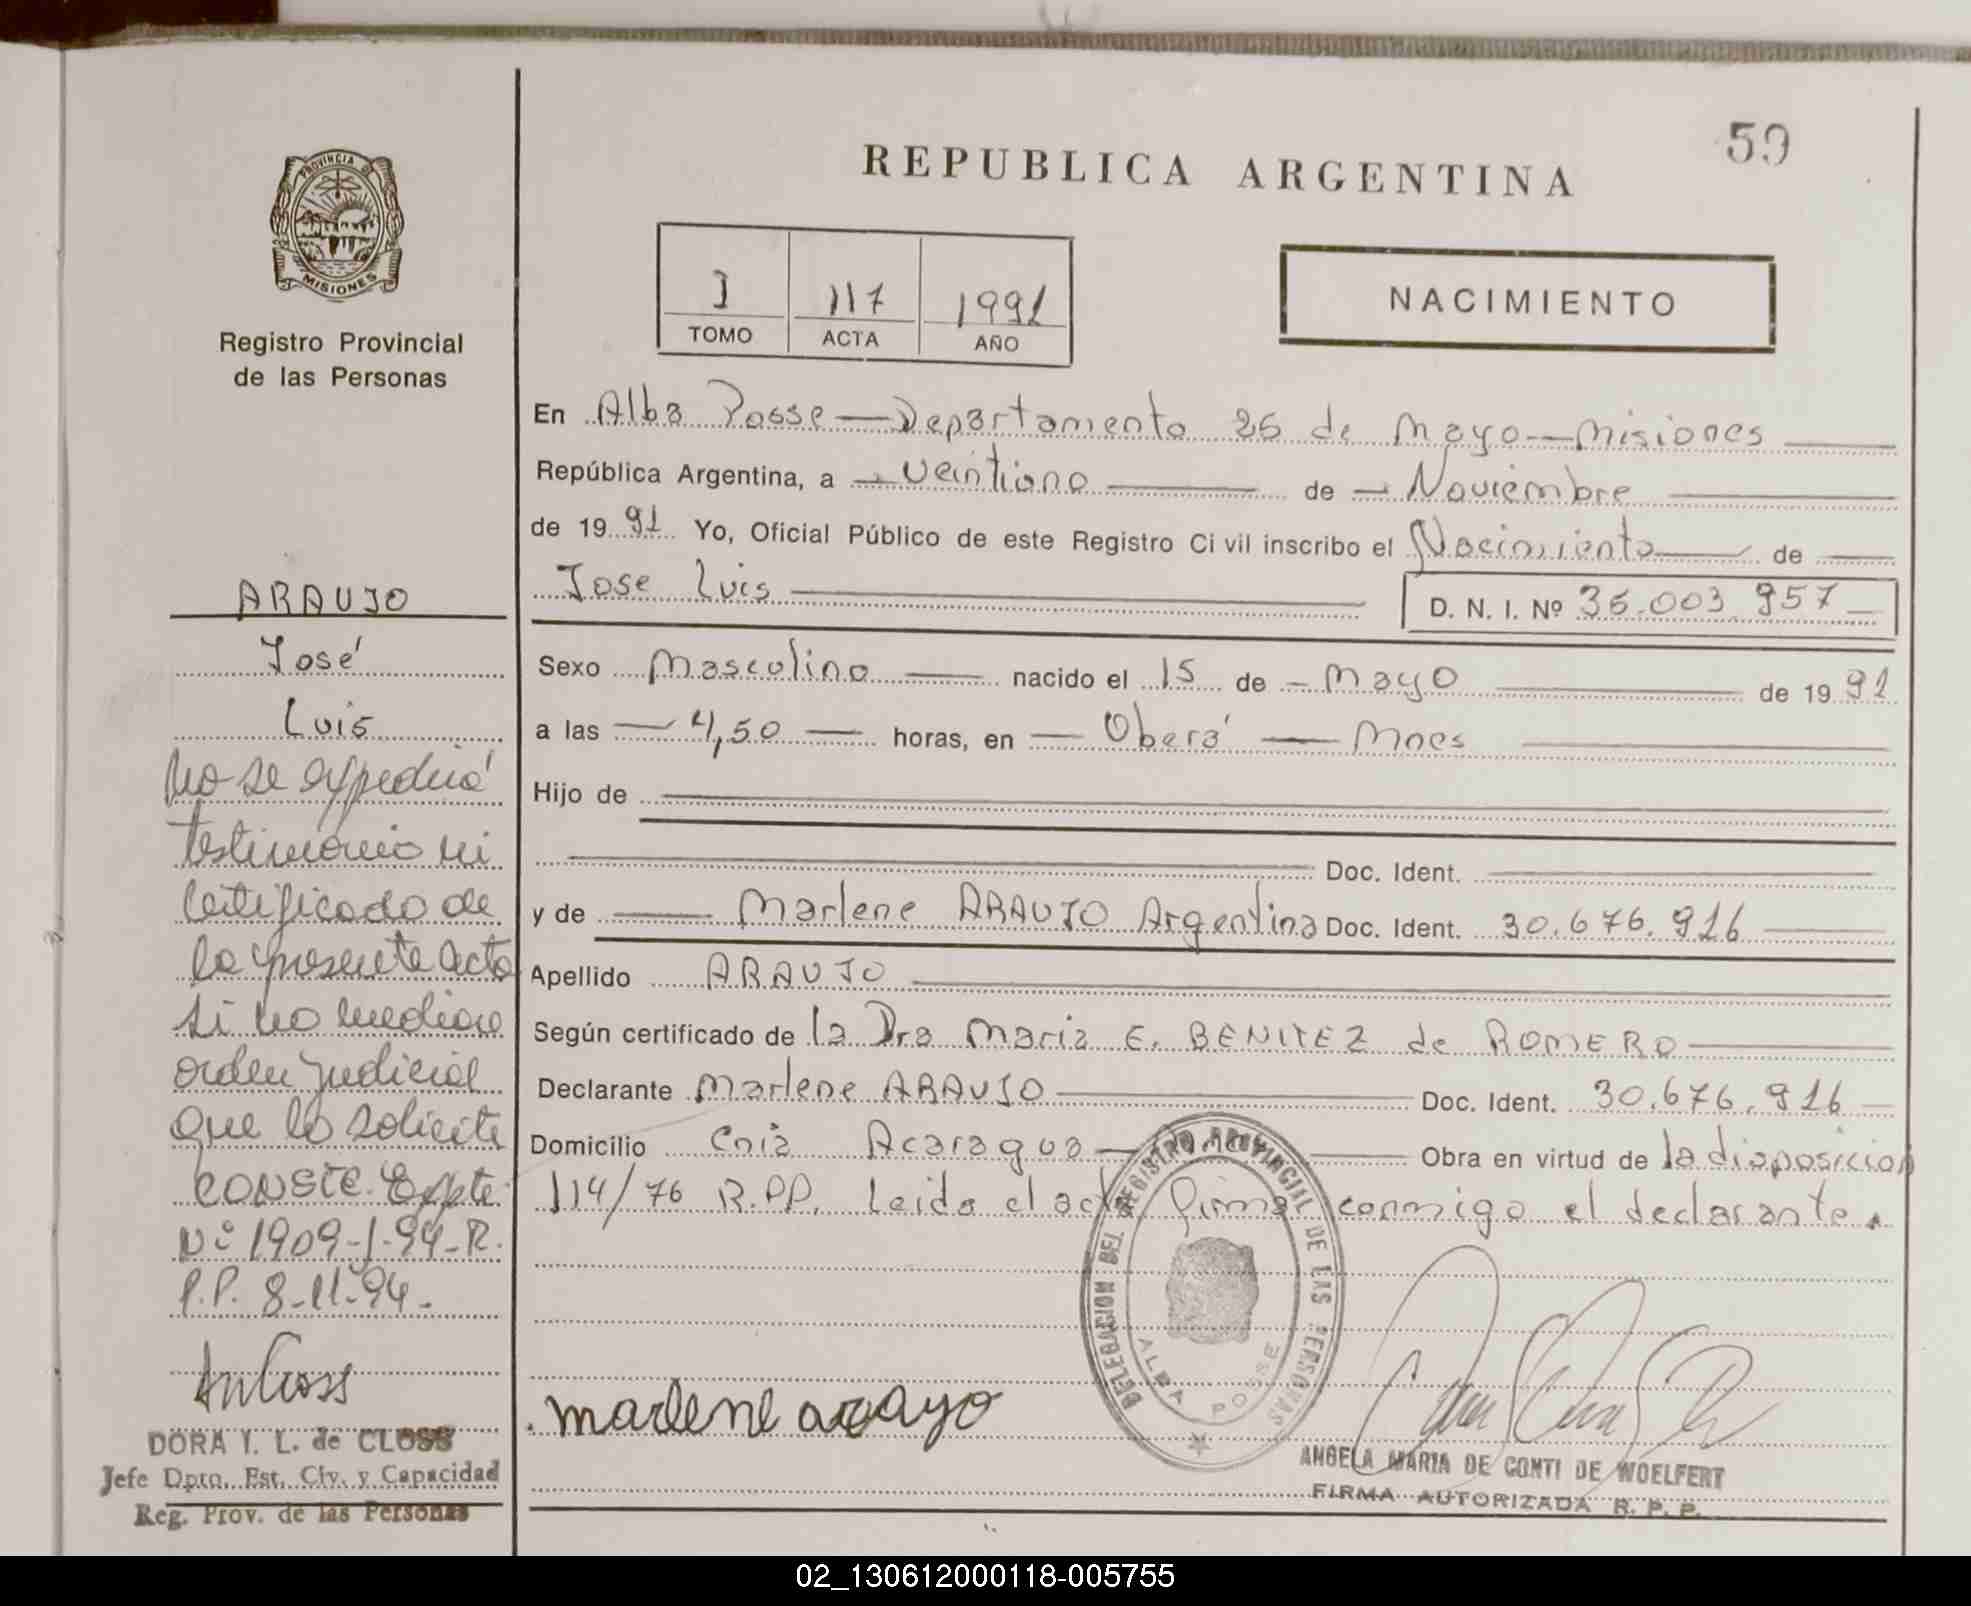 59
REPUBLICA ARGENTINA
PROVINCIA DE
MISIONES
Registro Provincial
de las Personas
I 117 1991
TOMO ACTA AÑO
NACIMIENTO
En Alba Posse — Departamento 25 de Mayo — Misiones
República Argentina, a — veintiuno — de — Noviembre
de 19 91 Yo, Oficial Público de este Registro Civil inscribo el Nacimiento — de
Jose Luis
D. N. I. Nº 36.003.957
Sexo Masculino — nacido el 15 de — Mayo — de 19 91
a las — 4,50 — horas, en — Oberá — Mnes
Hijo de
Doc. Ident.
y de — Marlene ARAUJO Argentina Doc. Ident. 30.676.916
Apellido ARAUJO
Según certificado de la Dra Maria E. BENITEZ de ROMERO
Declarante Marlene ARAUJO — Doc. Ident. 30.676.916
Domicilio Cnia Acaragua — Obra en virtud de la disposicion
114/76 R.P.P. Leida el acta firma conmigo el declarante.
ARAUJO
José
Luis
No se expedirá
testimonio ni
certificado de
la presente acta
si no mediare
orden judicial
que lo solicite
CONSTE. Expte.
Nº 1909-J-94-R.
P.P. 8-11-94-
DORA Y. L. de CLOSS
Jefe Dpto. Est. Civ. y Capacidad
Reg. Prov. de las Personas
marlene arayo
DELEGACION DEL REGISTRO PROVINCIAL DE LAS PERSONAS
ALBA POSSE
ANGELA MARIA DE CONTI DE WOELFERT
FIRMA AUTORIZADA R. P. P.
02_130612000118-005755